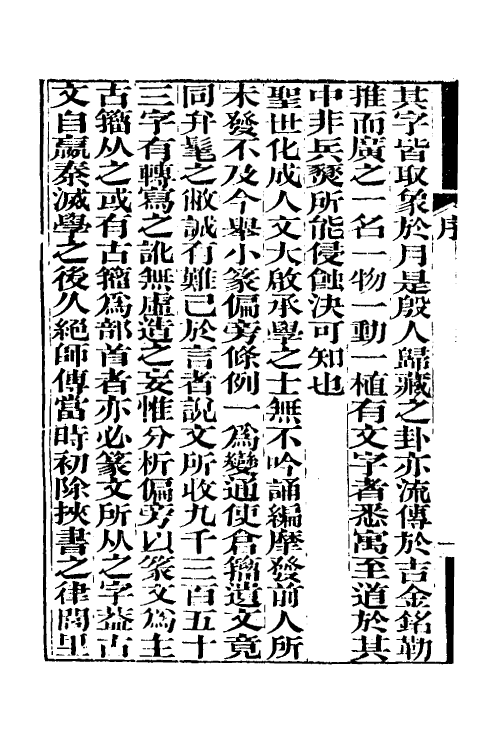 其字皆取象於月是殷人歸藏之卦亦流傳於吉金銘勒
推而廣之一名一物一動一植有文字者悉寓至道於其
中非兵燹所能侵蝕決可知也
聖世化成人文大啟承學之士無不吟誦編摩發前人所
未發不及今舉小篆偏旁條例一為變通使倉籀遺文竟
同弁髦之敝誠有難已於言者說文所收九千三百五十
三字有轉寫之訛無虛造之妄惟分析偏旁以篆文為主
古籀从之或有古籀為部首者亦必篆文所从之字益古
文自嬴秦滅學之後久絕師傳當時初除挾書之律閭里
序
一